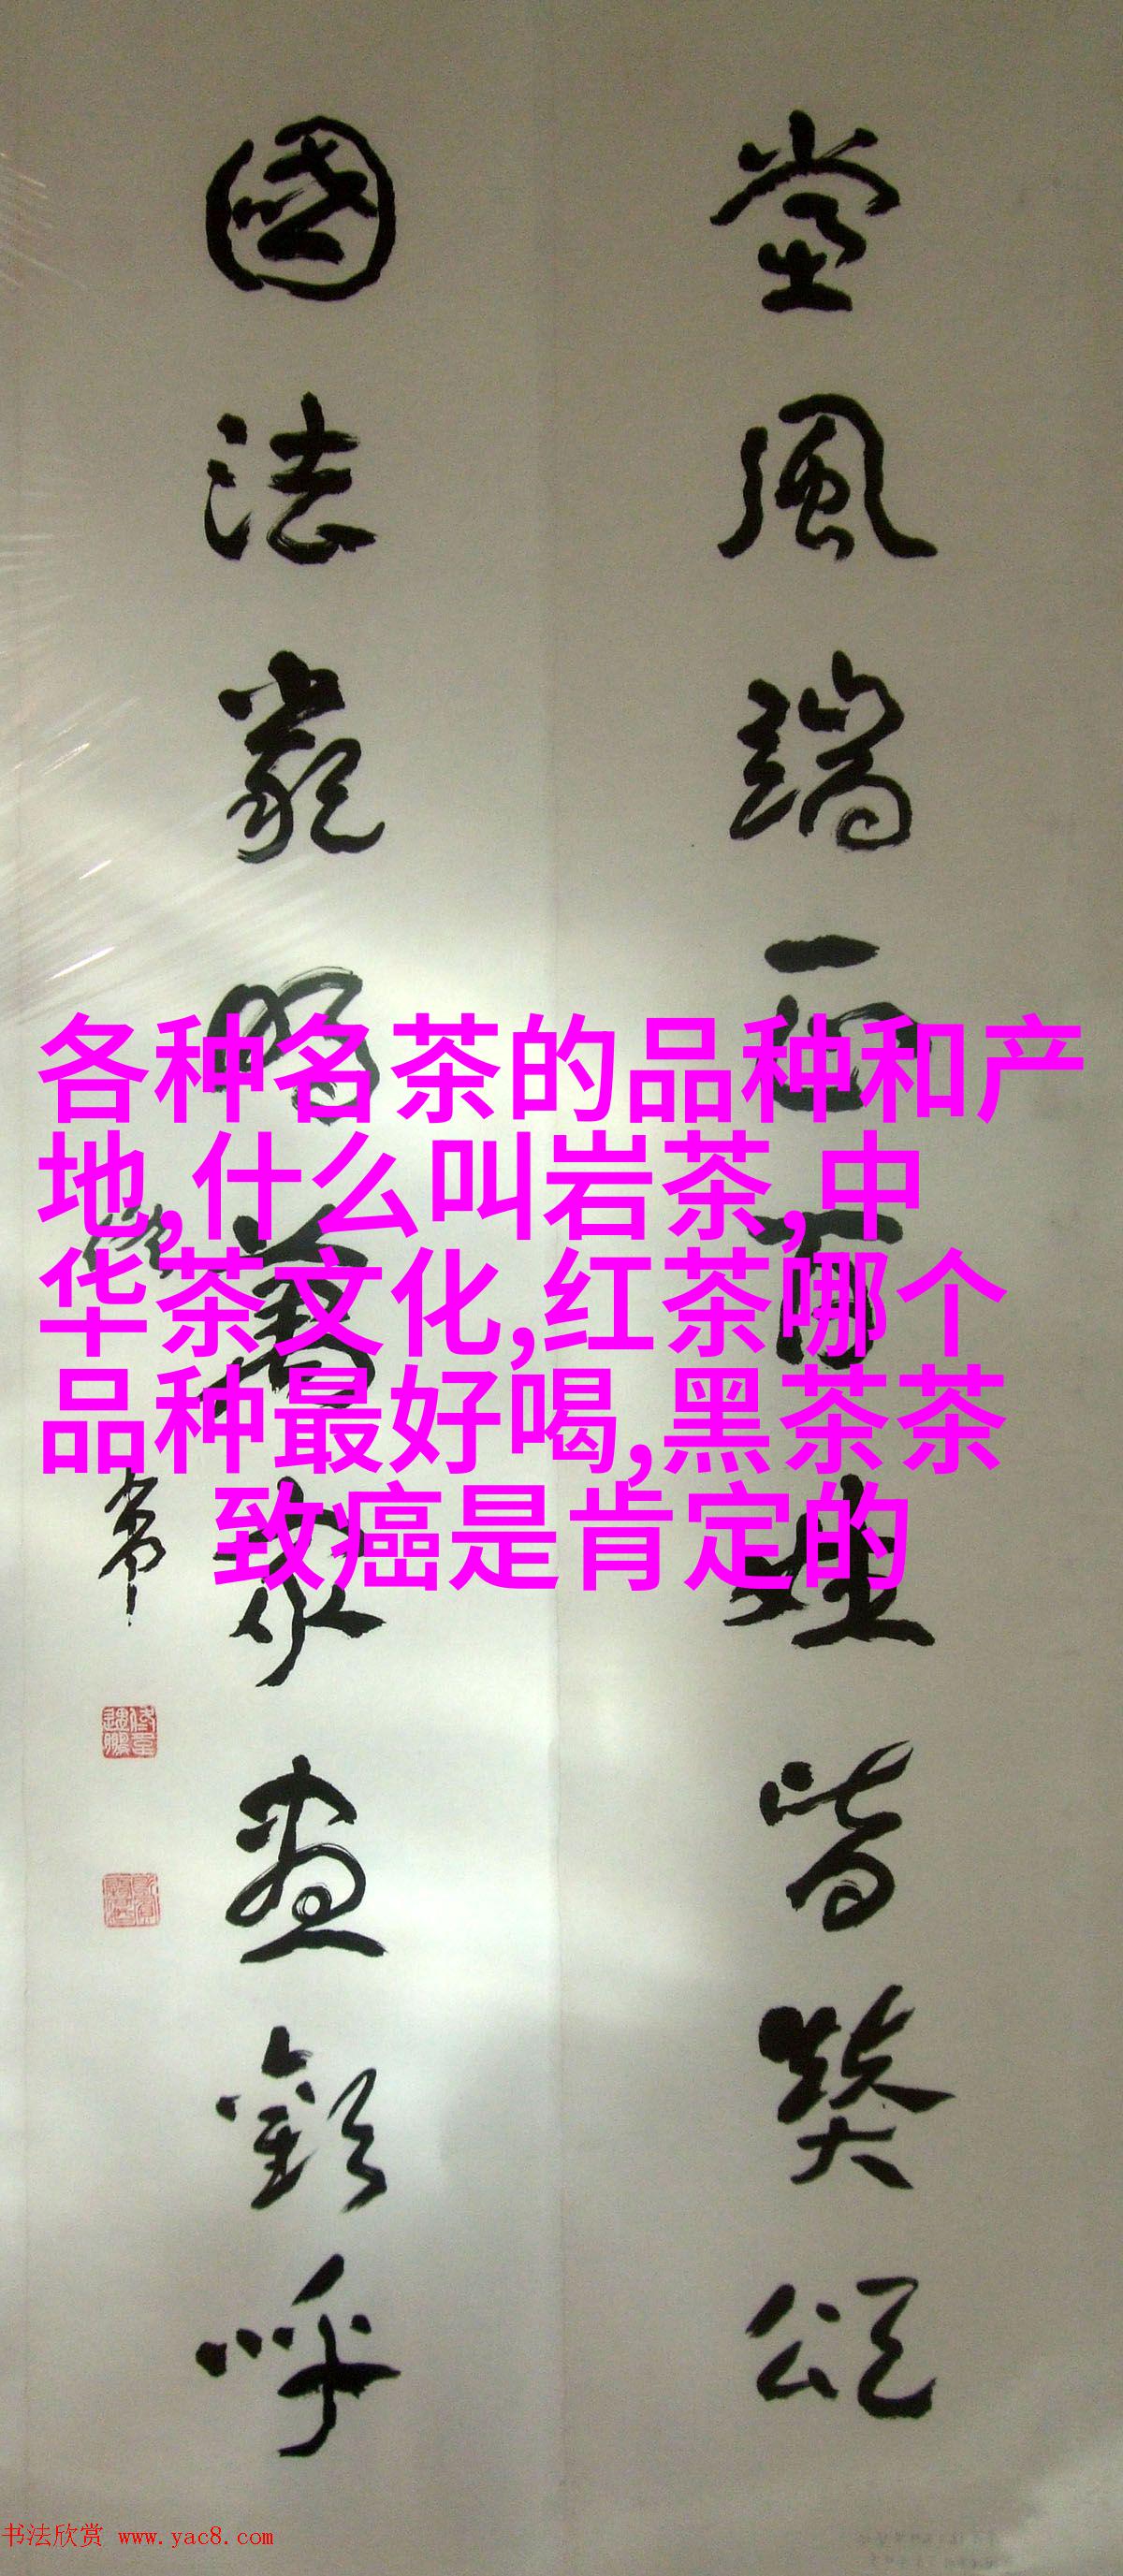 黨風端正百姓皆頌
國法嚴明萬眾盡歡呼
各种名茶的品种和产
地,什么叫岩茶,中
华茶文化,红茶哪个
品种最好喝,黑茶茶
致癌是肯定的
书法欣赏 www.yac8.com